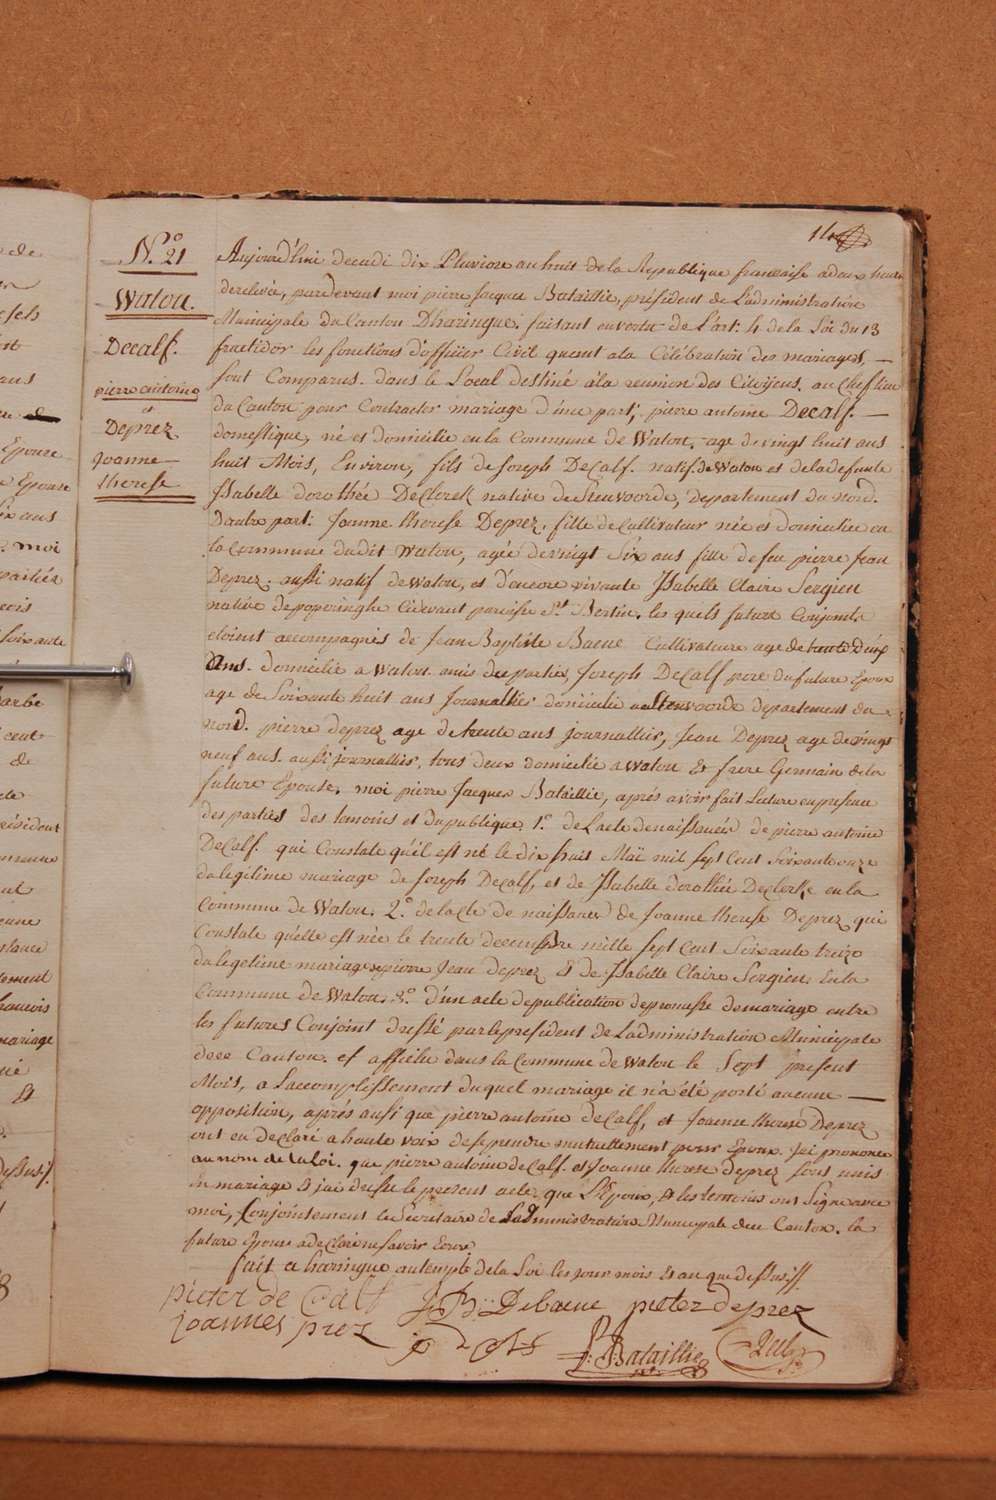 14
N.º 21
Watou.
Decalf.
pierre antoine
et
Deprez
Joanne
therese
Aujourd'hui decadi dix Pluviose an huit de la Republique francaise a deux heures
de relevée, pardevant moi pierre Jacques Bataillie, président de L'administration
Municipale du Canton D'haringue, faisant en vertu de L'art: 4 de la Loi du 13
fructidor les fonctions d'officier Civil quant a la Célébration des mariages, —
sont Comparus dans le Local destiné à la reunion des Citoijens, au Chef lieu
du Canton pour Contracter mariage d'une part, pierre antoine Decalf. —
domestique, né et domicilie en la Commune de Watou, age de vingt huit ans
huit Mois, Environ, fils de Joseph DeCalf. natif de Watou et de la defunte
Isabelle dorothée DeClerck native de Steenvoorde, Departement du Nord.
D'autre part: Joanne therese Deprez, fille de Cultivateur née et domiciliee en
la Commune du dit Watou, agée de vingt Six ans fille de feu pierre Jean
Deprez, aussi natif de Watou, et d'encore vivante Isabelle Claire Sergien
native de poperinghe cidevant paroisse St. Bertin, les quels future Conjoints
etoient accompagnés de Jean Baptiste Baene Cultivateure age de trente Deux
Ans. domicilié a Watou amis des parties, Joseph DeCalf pere du future Epoux
age de Soixante huit ans Journallier domicilié a Steenvoorde departement du
nord. pierre deprez age de trente ans journallier, Jean Deprez age de vingt
neuf ans aussi journallier, tous deux domicilie a Watou Et frere Germain de la
future Epouse, moi pierre Jacques Bataillie, aprés avoir fait Lecture en presence
des parties des temoins et du publique 1.º de L'acte de naissance de pierre antoine
DeCalf. qui Constate qu'il est né le dix huit Maï mil Sept Cent Soixante onze
du legitime mariage de Joseph DeCalf, et de Isabelle dorothée Declerke en la
Commune de Watou. 2.º de lacte de naissance de Joanne therese Deprez qui
Constate qu'elle est née le trente decembre mille sept Cent Soixante treize
du legitime mariage de pierre Jean deprez & de Isabelle Claire Sergien En la
Commune de Watou. 3.º d'un acte de publication de promesse de mariage entre
les futures Conjoint dressé par le president de L'administration Municipale
de ce Canton. et affiché dans la Commune de Watou le Sept present
Mois, a Laccomplissement du quel mariage il n'a été porté aucune —
opposition, aprés aussi que pierre antoine deCalf, et Joanne therese Deprez
ont eu declaré a haute voix de se prendre mutuellement pour Epoux. J'ai prononcé
au nom de la Loi. que pierre antoine deCalf. et Joanne therese deprez sont unis
en mariage & jai dressé le present acte, que L'Epoux, & les temoins ont Signé avec
moi, Conjointement le Secretaire de Ladministration Municipale de ce Canton. la
future Epouse a declaré ne savoir Ecrire
fait a haringue au temple de la Loi les jour mois & an que dessus.
pieter de Calf J: B: Debaene pieter deprez
joannes prez
P: J: Bataillie